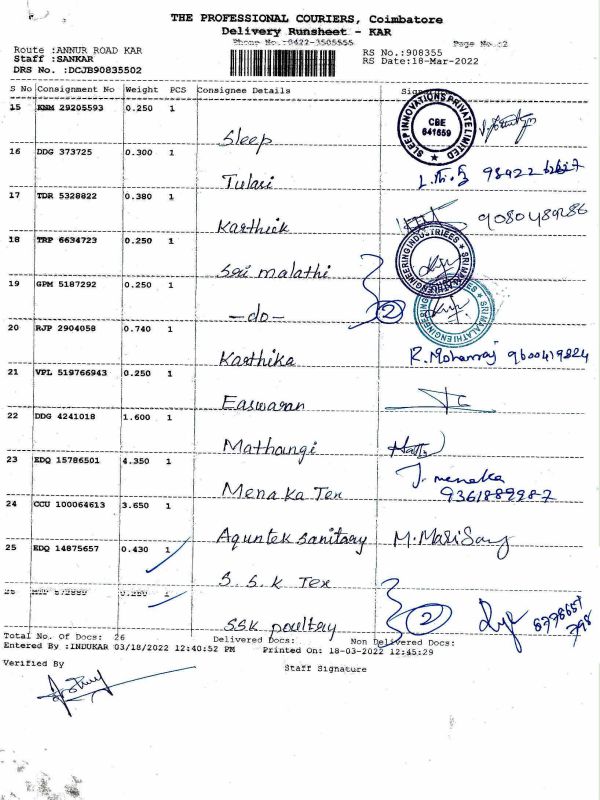 THE PROFESSIONAL COURIERS, Coimbatore
Delivery Runsheet - KAR
Phone No.:0422-3505555
Page No.:2
Route :ANNUR ROAD KAR
RS No.:908355
Staff :SANKAR
RS Date:18-Mar-2022
DRS No. :DCJB90835502
S No Consignment No Weight PCS Consignee Details
15 KNM 29205593 0.250 1 Sleep
SLEEP INNOVATIONS PRIVATE LIMITED
CBE
641659
16 DDG 373725 0.300 1 Tulasi
17 TDR 5328822 0.380 1 Karthick 9080489286
18 TRP 6634723 0.250 1 Sri malathi
SRI MALATHI ENGINEERING INDUSTRIEES
19 GPM 5187292 0.250 1 -do- 2
20 RJP 2904058 0.740 1 Karthika R. Mohanraj 9600419824
21 VPL 519766943 0.250 1 Easwaran
22 DDG 4241018 1.600 1 Mathangi
23 EDQ 15786501 4.350 1 Menaka Tex J. menaka
24 CCU 100064613 3.650 1 Aquntek sanitary
25 EDQ 14875657 0.430 1 S.S.K Tex
26 1 SSK poultry 2
Total No. Of Docs: 26 Delivered Docs: Non Delivered Docs:
Entered By :INDUKAR 03/18/2022 12:40:52 PM Printed On: 18-03-2022 12:45:29
Verified By
Staff Signature